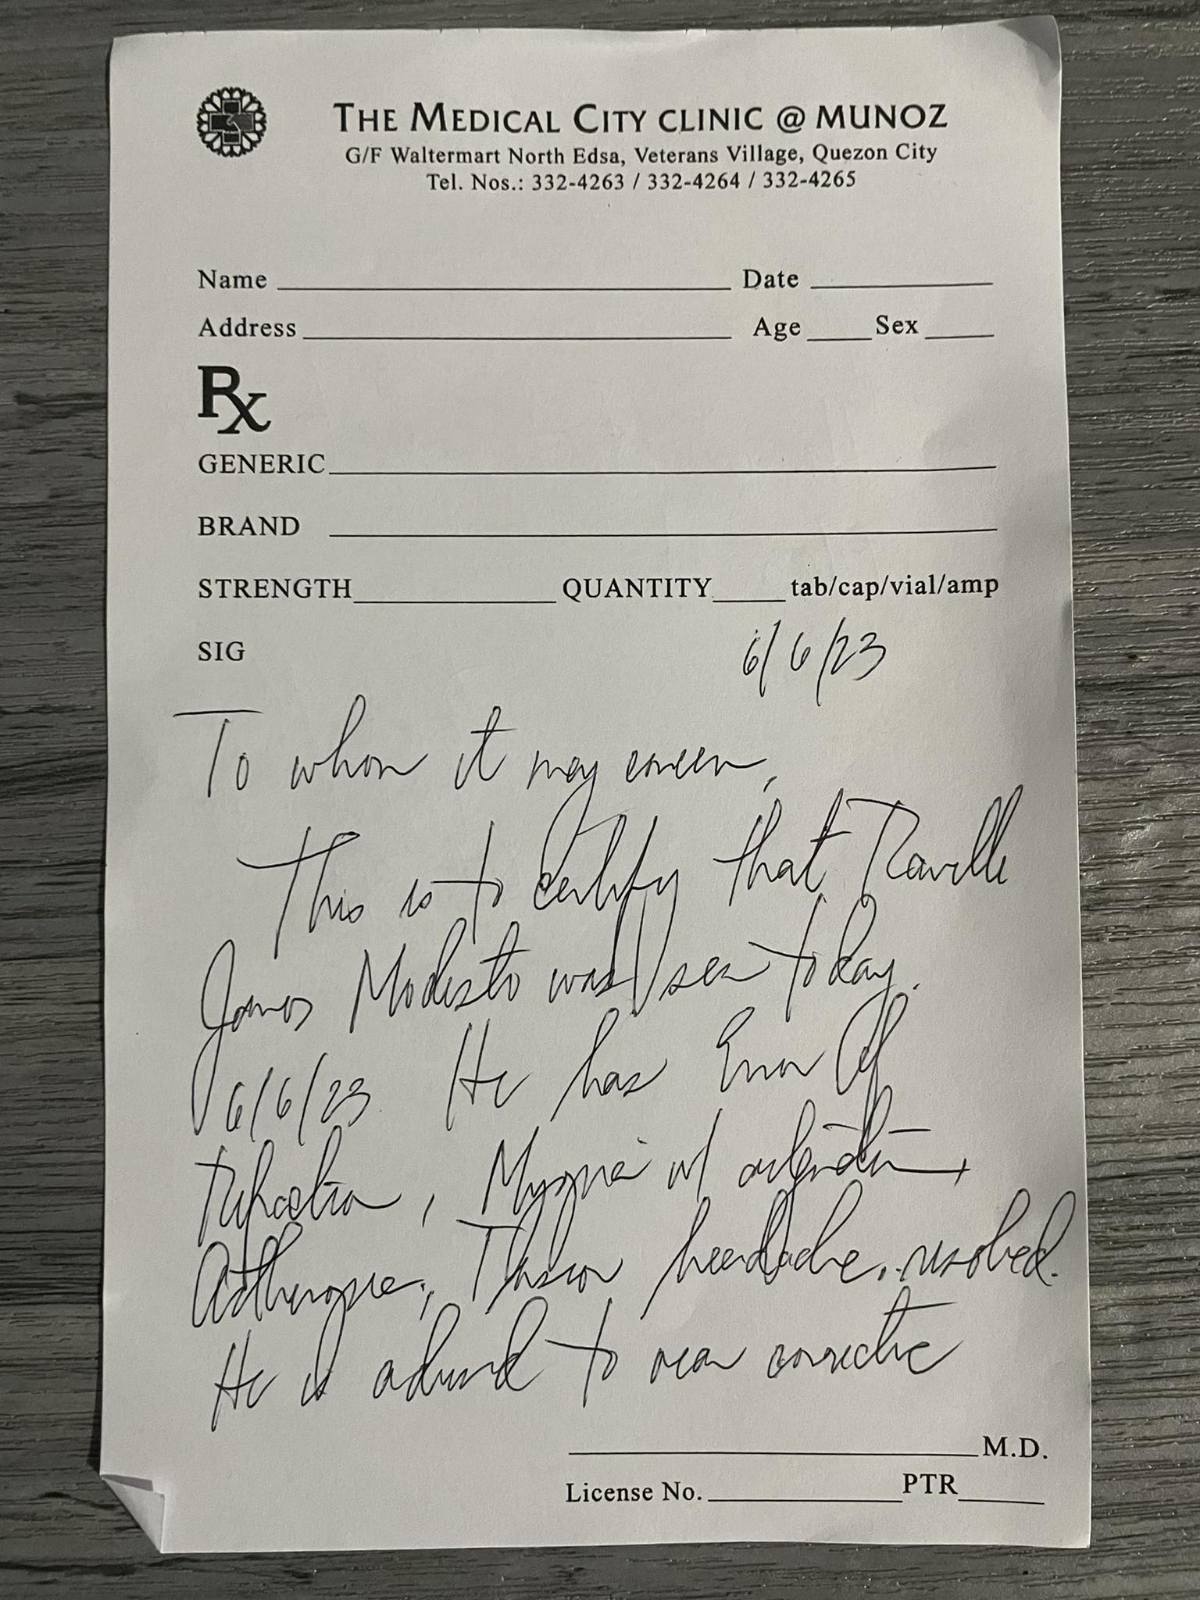 THE MEDICAL CITY CLINIC @ MUNOZ
G/F Waltermart North Edsa, Veterans Village, Quezon City
Tel. Nos.: 332-4263 / 332-4264 / 332-4265
Name Date
Address Age Sex
Rx
GENERIC
BRAND
STRENGTH QUANTITY tab/cap/vial/amp
SIG
6/6/23
To whom it may concern,
This is to certify that
James Modesto was seen today.
6/6/23 He has Error Of
Refraction, w/
Asthenopia, Tension headache, resolved.
He is advised to wear corrective
M.D.
License No. PTR